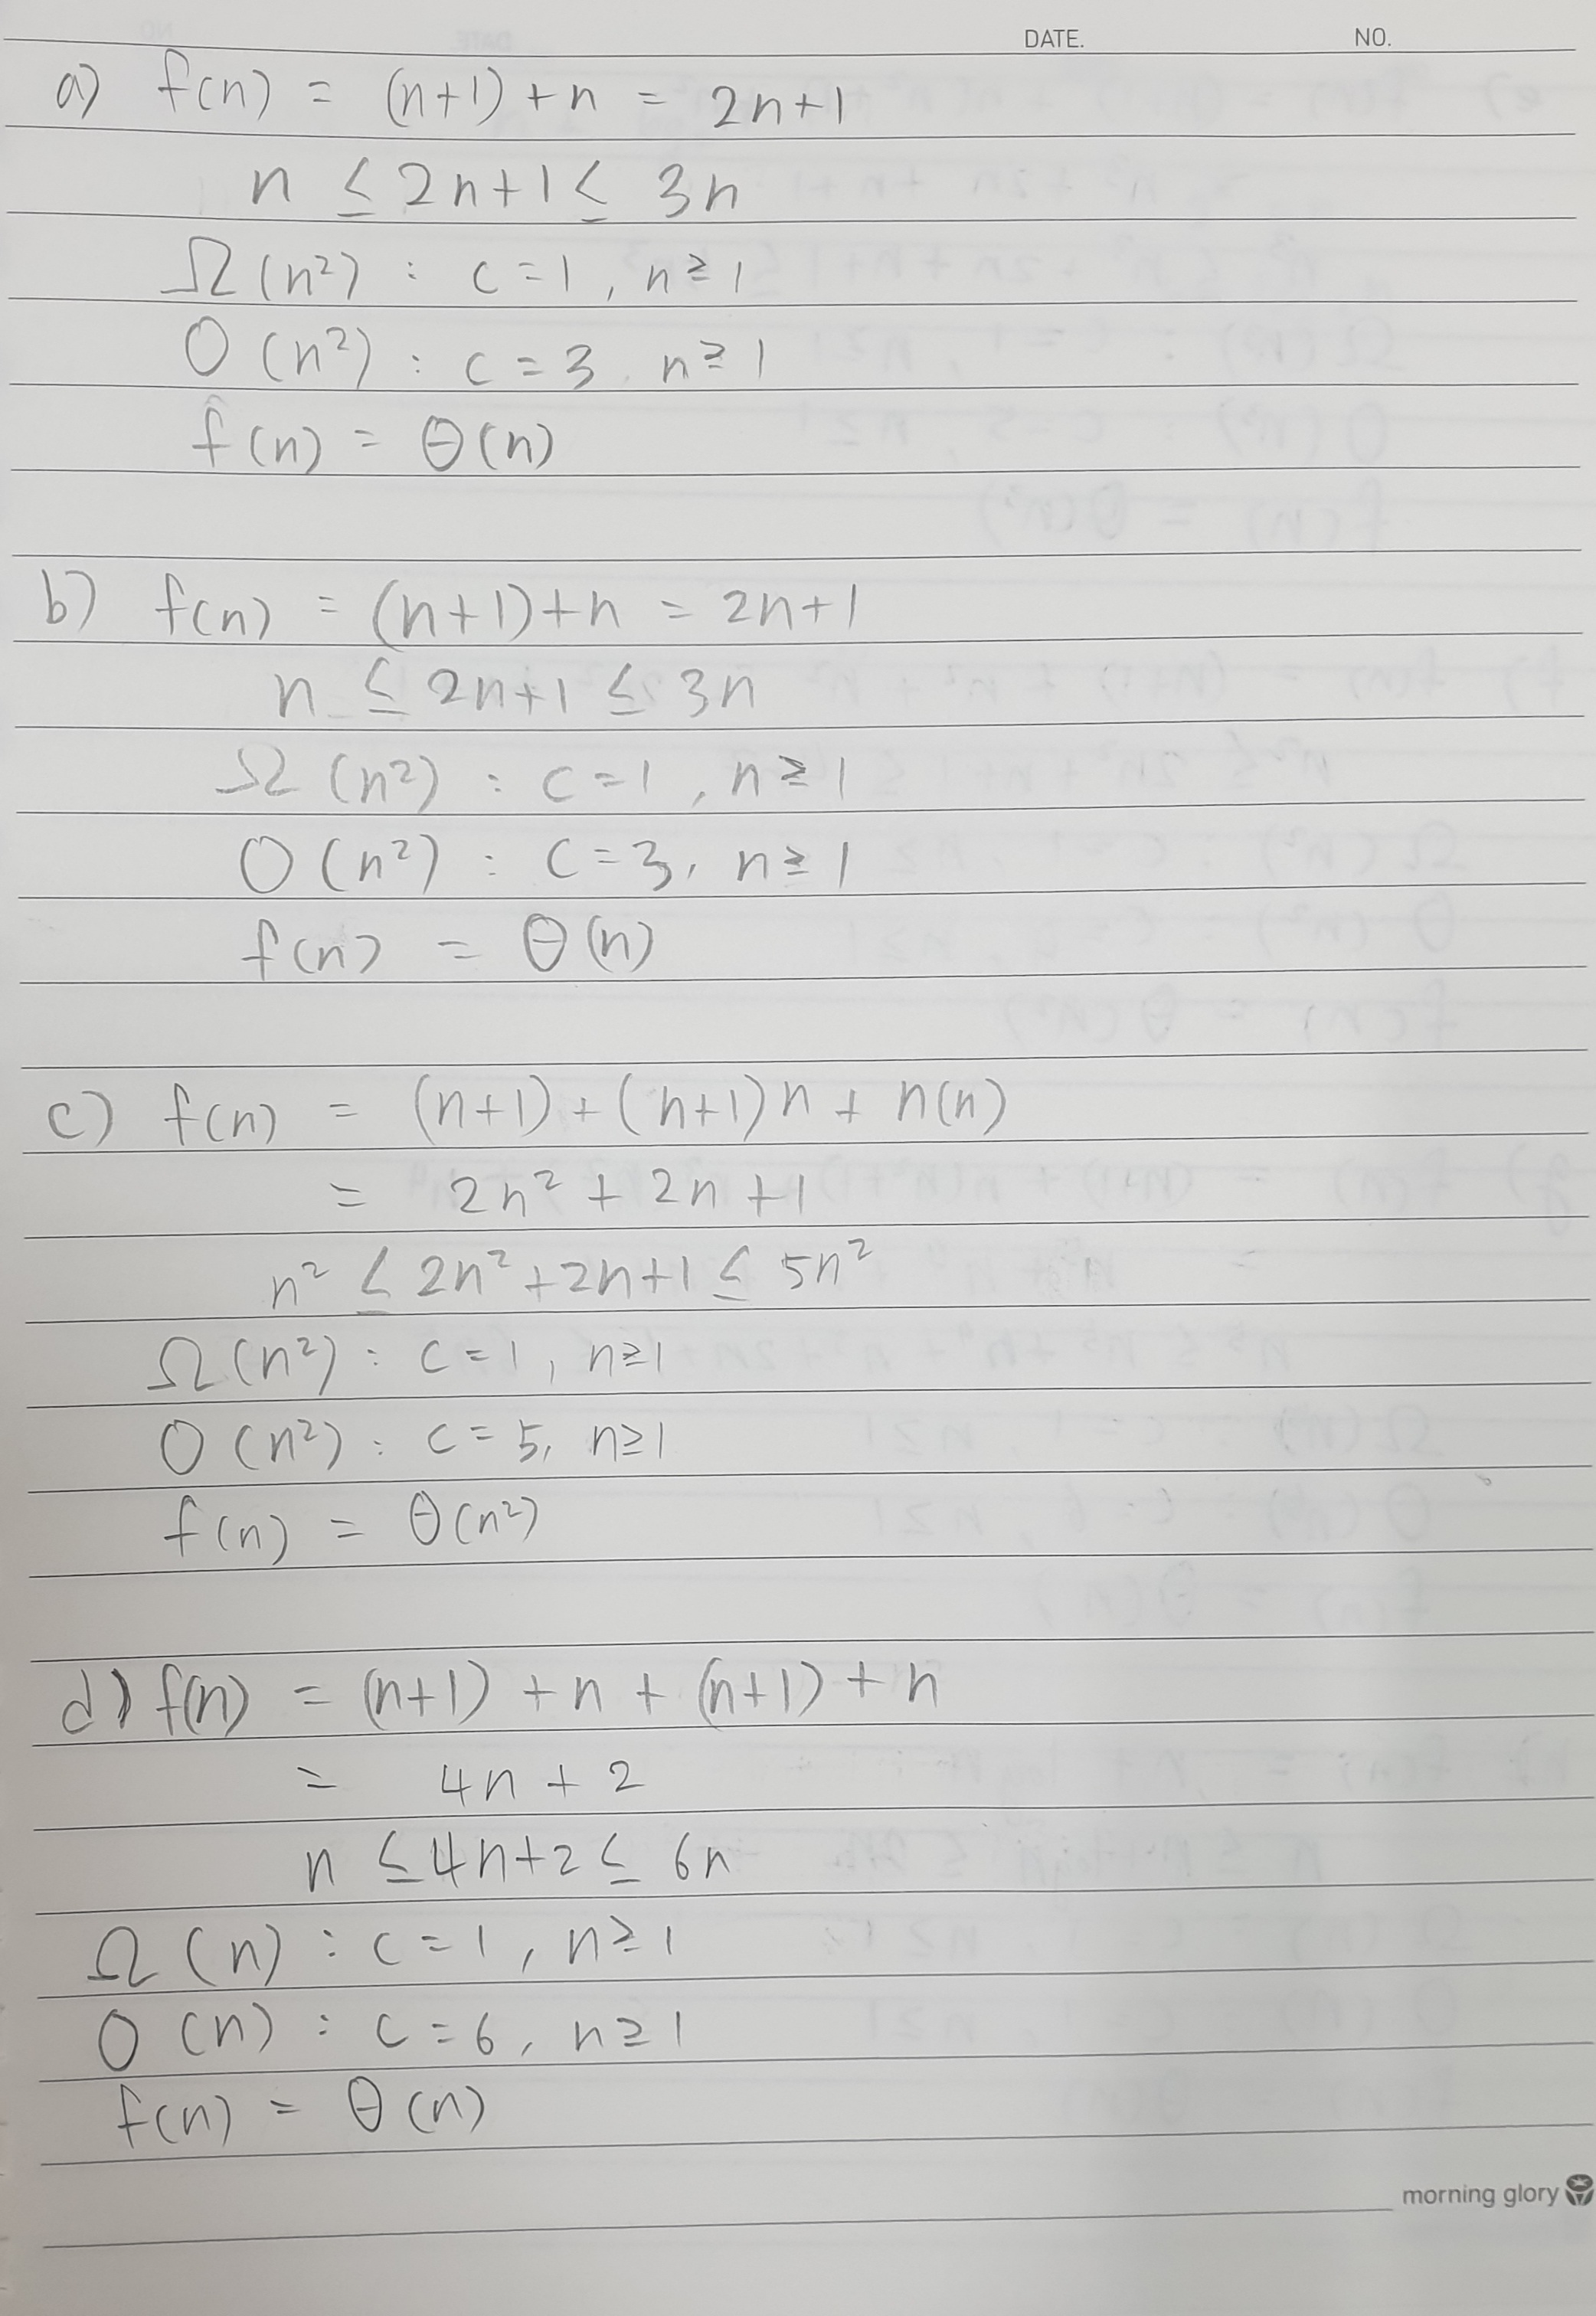 DATE. NO.
a) f(n) = (n+1) + n = 2n+1
n ≤ 2n+1 ≤ 3n
Ω(n²) : c=1, n≥1
O(n²) : c=3, n≥1
f(n) = θ(n)
b) f(n) = (n+1)+n = 2n+1
n ≤ 2n+1 ≤ 3n
Ω(n²) : c=1, n≥1
O(n²) : c=3, n≥1
f(n) = θ(n)
c) f(n) = (n+1)+(n+1)n + n(n)
= 2n² + 2n +1
n² ≤ 2n²+2n+1 ≤ 5n²
Ω(n²) : c=1, n≥1
O(n²) : c=5, n≥1
f(n) = θ(n²)
d) f(n) = (n+1) + n + (n+1) + n
= 4n + 2
n ≤ 4n+2 ≤ 6n
Ω(n) : c=1, n≥1
O(n) : c=6, n≥1
f(n) = θ(n)
morning glory